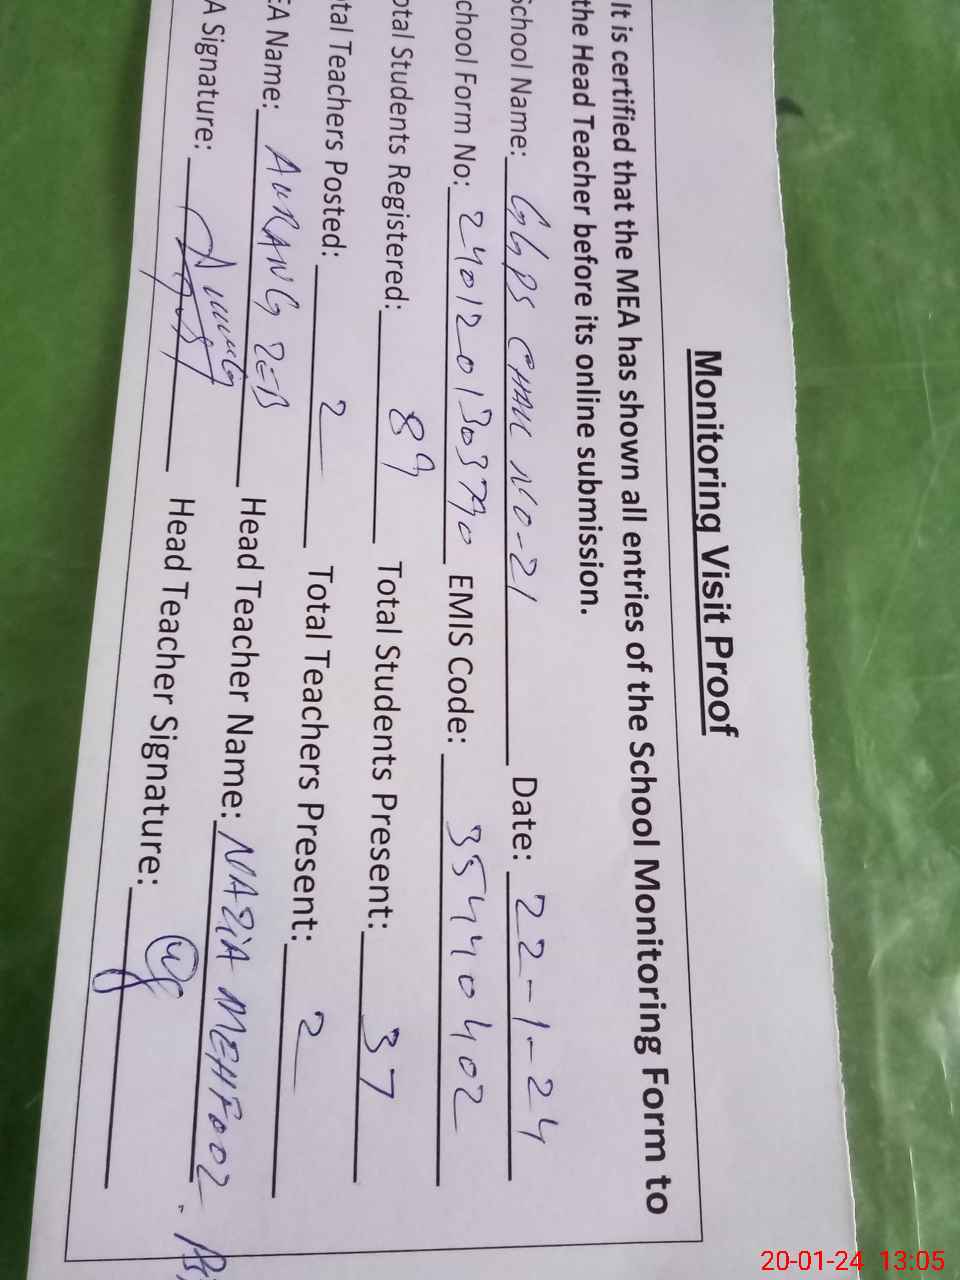 Monitoring Visit Proof
It is certified that the MEA has shown all entries of the School Monitoring Form to
the Head Teacher before its online submission.
School Name: GGPS CHAK NO-21 Date: 22-1-24
chool Form No: 2401201303790 EMIS Code: 35440402
otal Students Registered: 89 Total Students Present: 37
tal Teachers Posted: 2 Total Teachers Present: 2
EA Name: AURANG ZEB Head Teacher Name: NAZIA MEHFOOZ
A Signature: Head Teacher Signature:
20-01-24 13:05